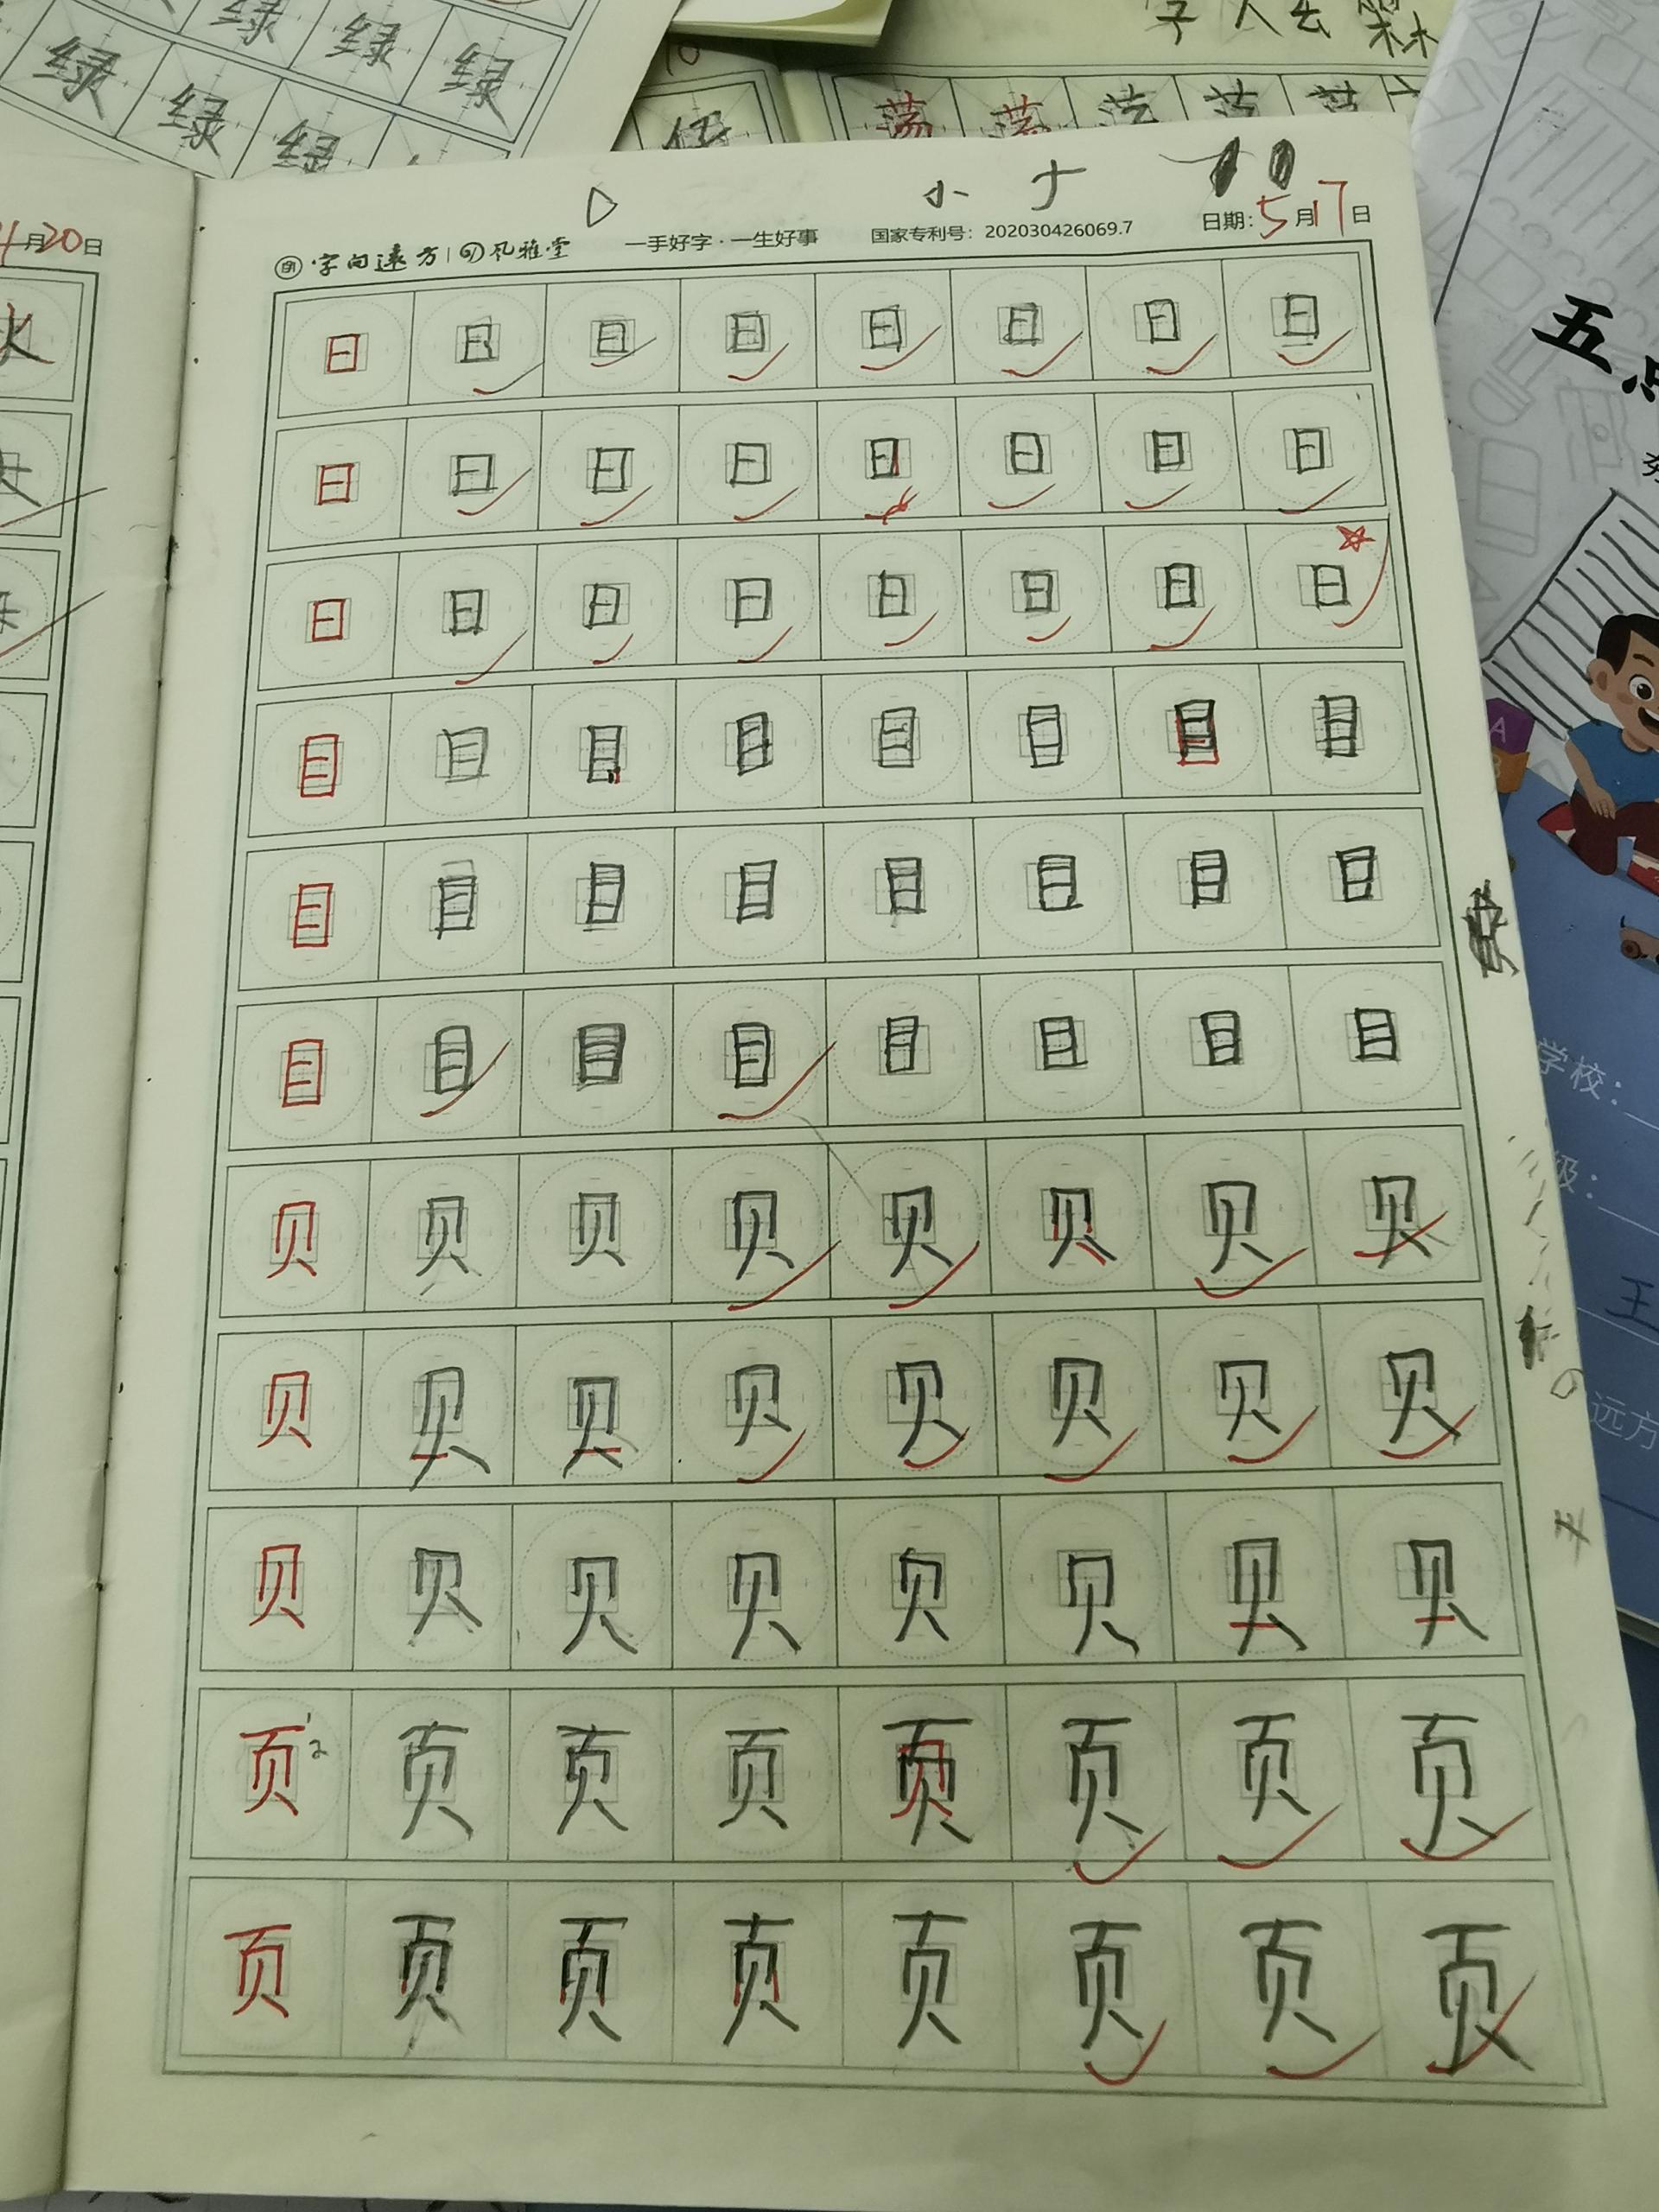 绿 绿 绿 绿
绿 绿
荡 荡
4月20日
小
字向远方 风雅堂 一手好字·一生好事 国家专利号：202030426069.7 日期：5月17日
日 日 日 日 日 日 日 日
日 日 日 日 日 日 日 日
日 日 日 日 日 日 日 日
目 目 目 目 目 目 目 目
目 目 目 目 目 目 目 目
目 目 目 目 目 目 目 目
贝 贝 贝 贝 贝 贝 贝 贝
贝 贝 贝 贝 贝 贝 贝 贝
贝 贝 贝 贝 贝 贝 贝 贝
页 1 2 页 页 页 页 页 页 页
页 页 页 页 页 页 页 页
五
A
学校：
级：
王
远方